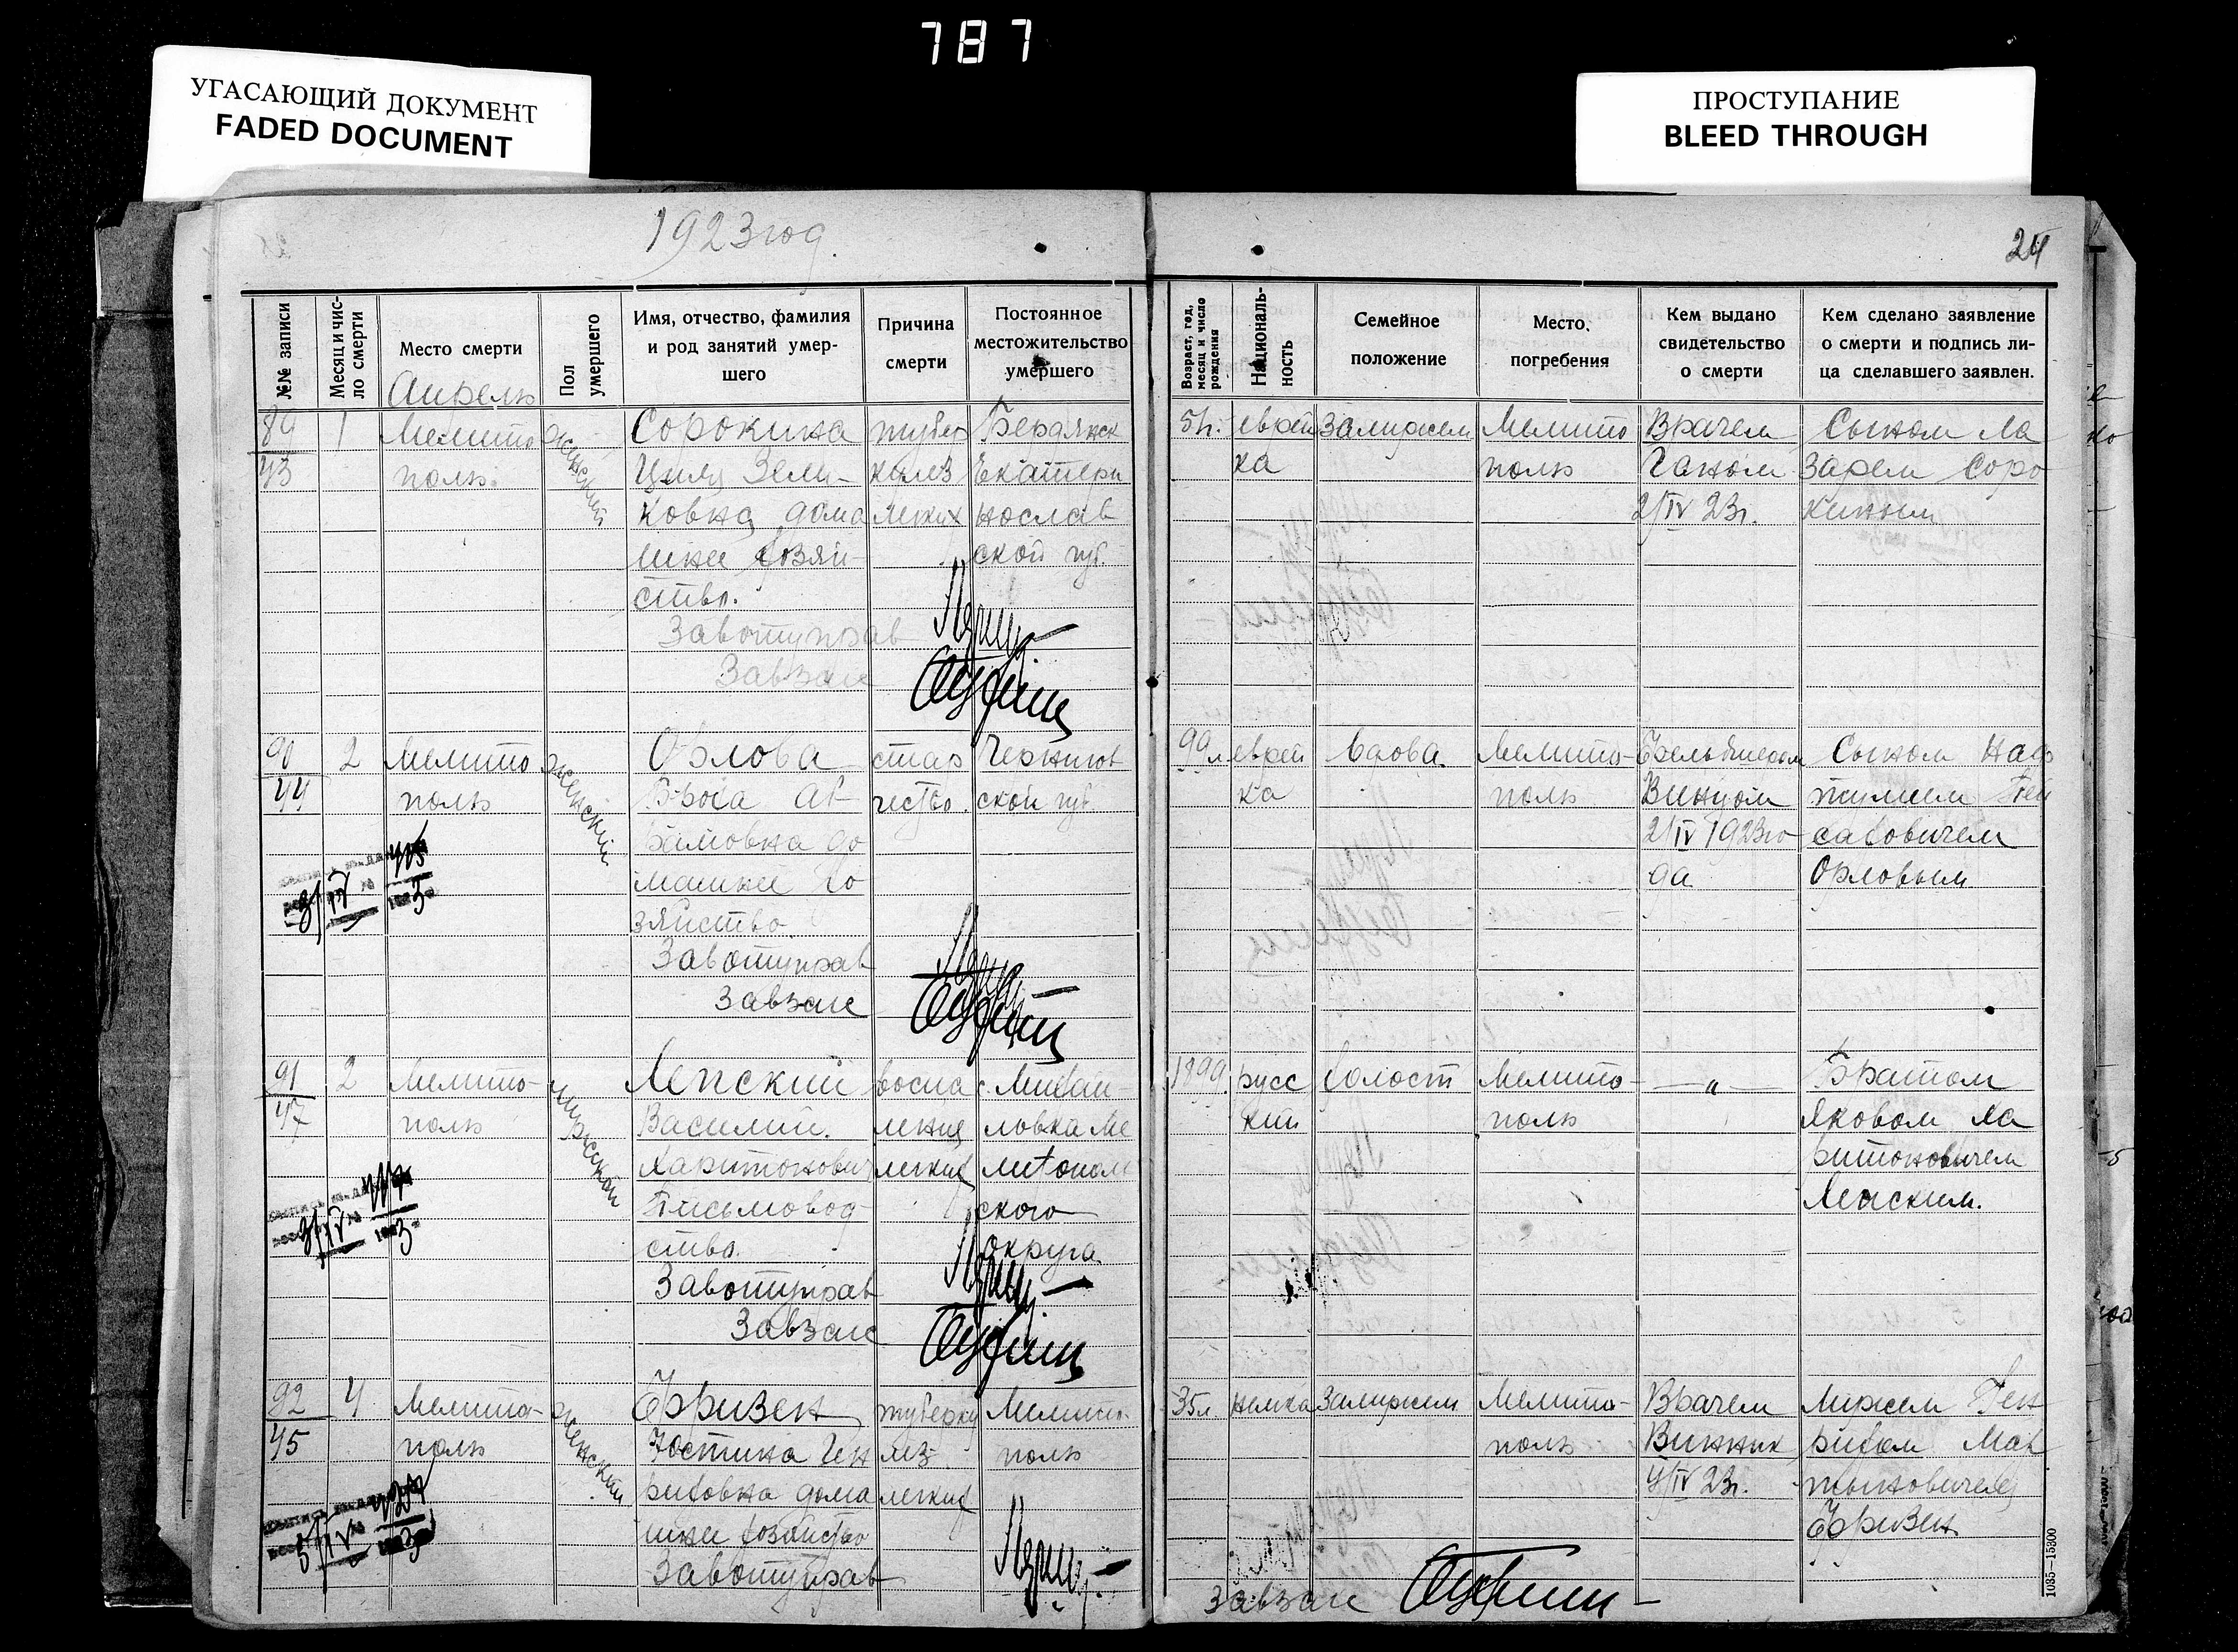 787
УГАСАЮЩИЙ ДОКУМЕНТ
FADED DOCUMENT
ПРОСТУПАНИЕ
BLEED THROUGH
1923 год.
24
№№ записи
Месяц и чис-
ло смерти
Место смерти
Пол
умершего
Имя, отчество, фамилия
и род занятий умер-
шего
Причина
смерти
Постоянное
местожительство
умершего
Возраст, год,
месяц и число
рождения
Националь-
ность
Семейное
положение
Место
погребения
Кем выдано
свидетельство
о смерти
Кем сделано заявление
о смерти и подпись ли-
ца сделавшего заявлен.
Апрель
89
43
1
Мелито
поль
женский
Сорокина
Циля Зели-
ковна дома
шнее хозяй-
ство.
Завотуправ
Завзагс
тубер
кулез
легких
Бердянск
Екатери
нослав
ской губ.
51г.
еврей
ка
Замужем
Мелито
поль
Врачем
Ганом
2/IV 23г.
Сыном Ла
зарем Соро
киным
90
44
2
Мелито
поль
женский
Орлова
Аб-
рамовна до
машнее хо
зяйство.
Завотуправ
Завзагс
стар
чество.
Чернигов
ской губ.
99л
еврей
ка
вдова.
Мелито-
поль
2/IV 1923 го-
да
Сыном Наф
тулием
саковичем
Орловым
3/IV
91
47
2
Мелито-
поль
мужской
Лепский
Василий.
Харитонович
Письмовод
ство.
Завотуправ
Завзагс
воспа
ление
легких
с. Михай-
ловка Ме
литополь
ского
округа.
1899.
русс
кий
холост
Мелито-
поль
— „ —
Братом
Яковом Ха
ритоновичем
Лепским.
3/IV
92
45
4
Мелито-
поль
женский
Фризен
Юстина Ген
риховна дома
шнее хозяйство
Завотуправ
туберку
лез
легких
Мелито-
поль
35л.
немка
Замужем
Мелито-
поль
Врачем
Винник
4/IV 23г.
Мужем Ген
рихом Мар
тыновичем
Фризен
5/IV
Завзагс
1035—15300